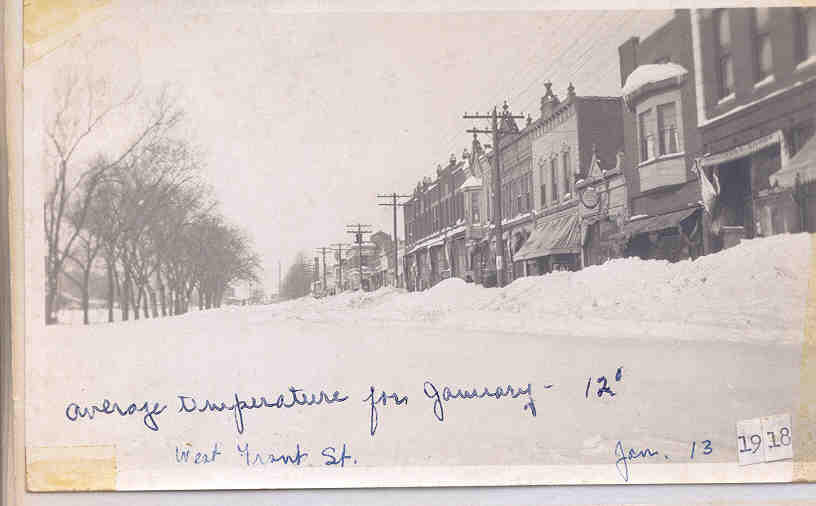 average temperature for January - 12°
West Front St. Jan. 13 1918